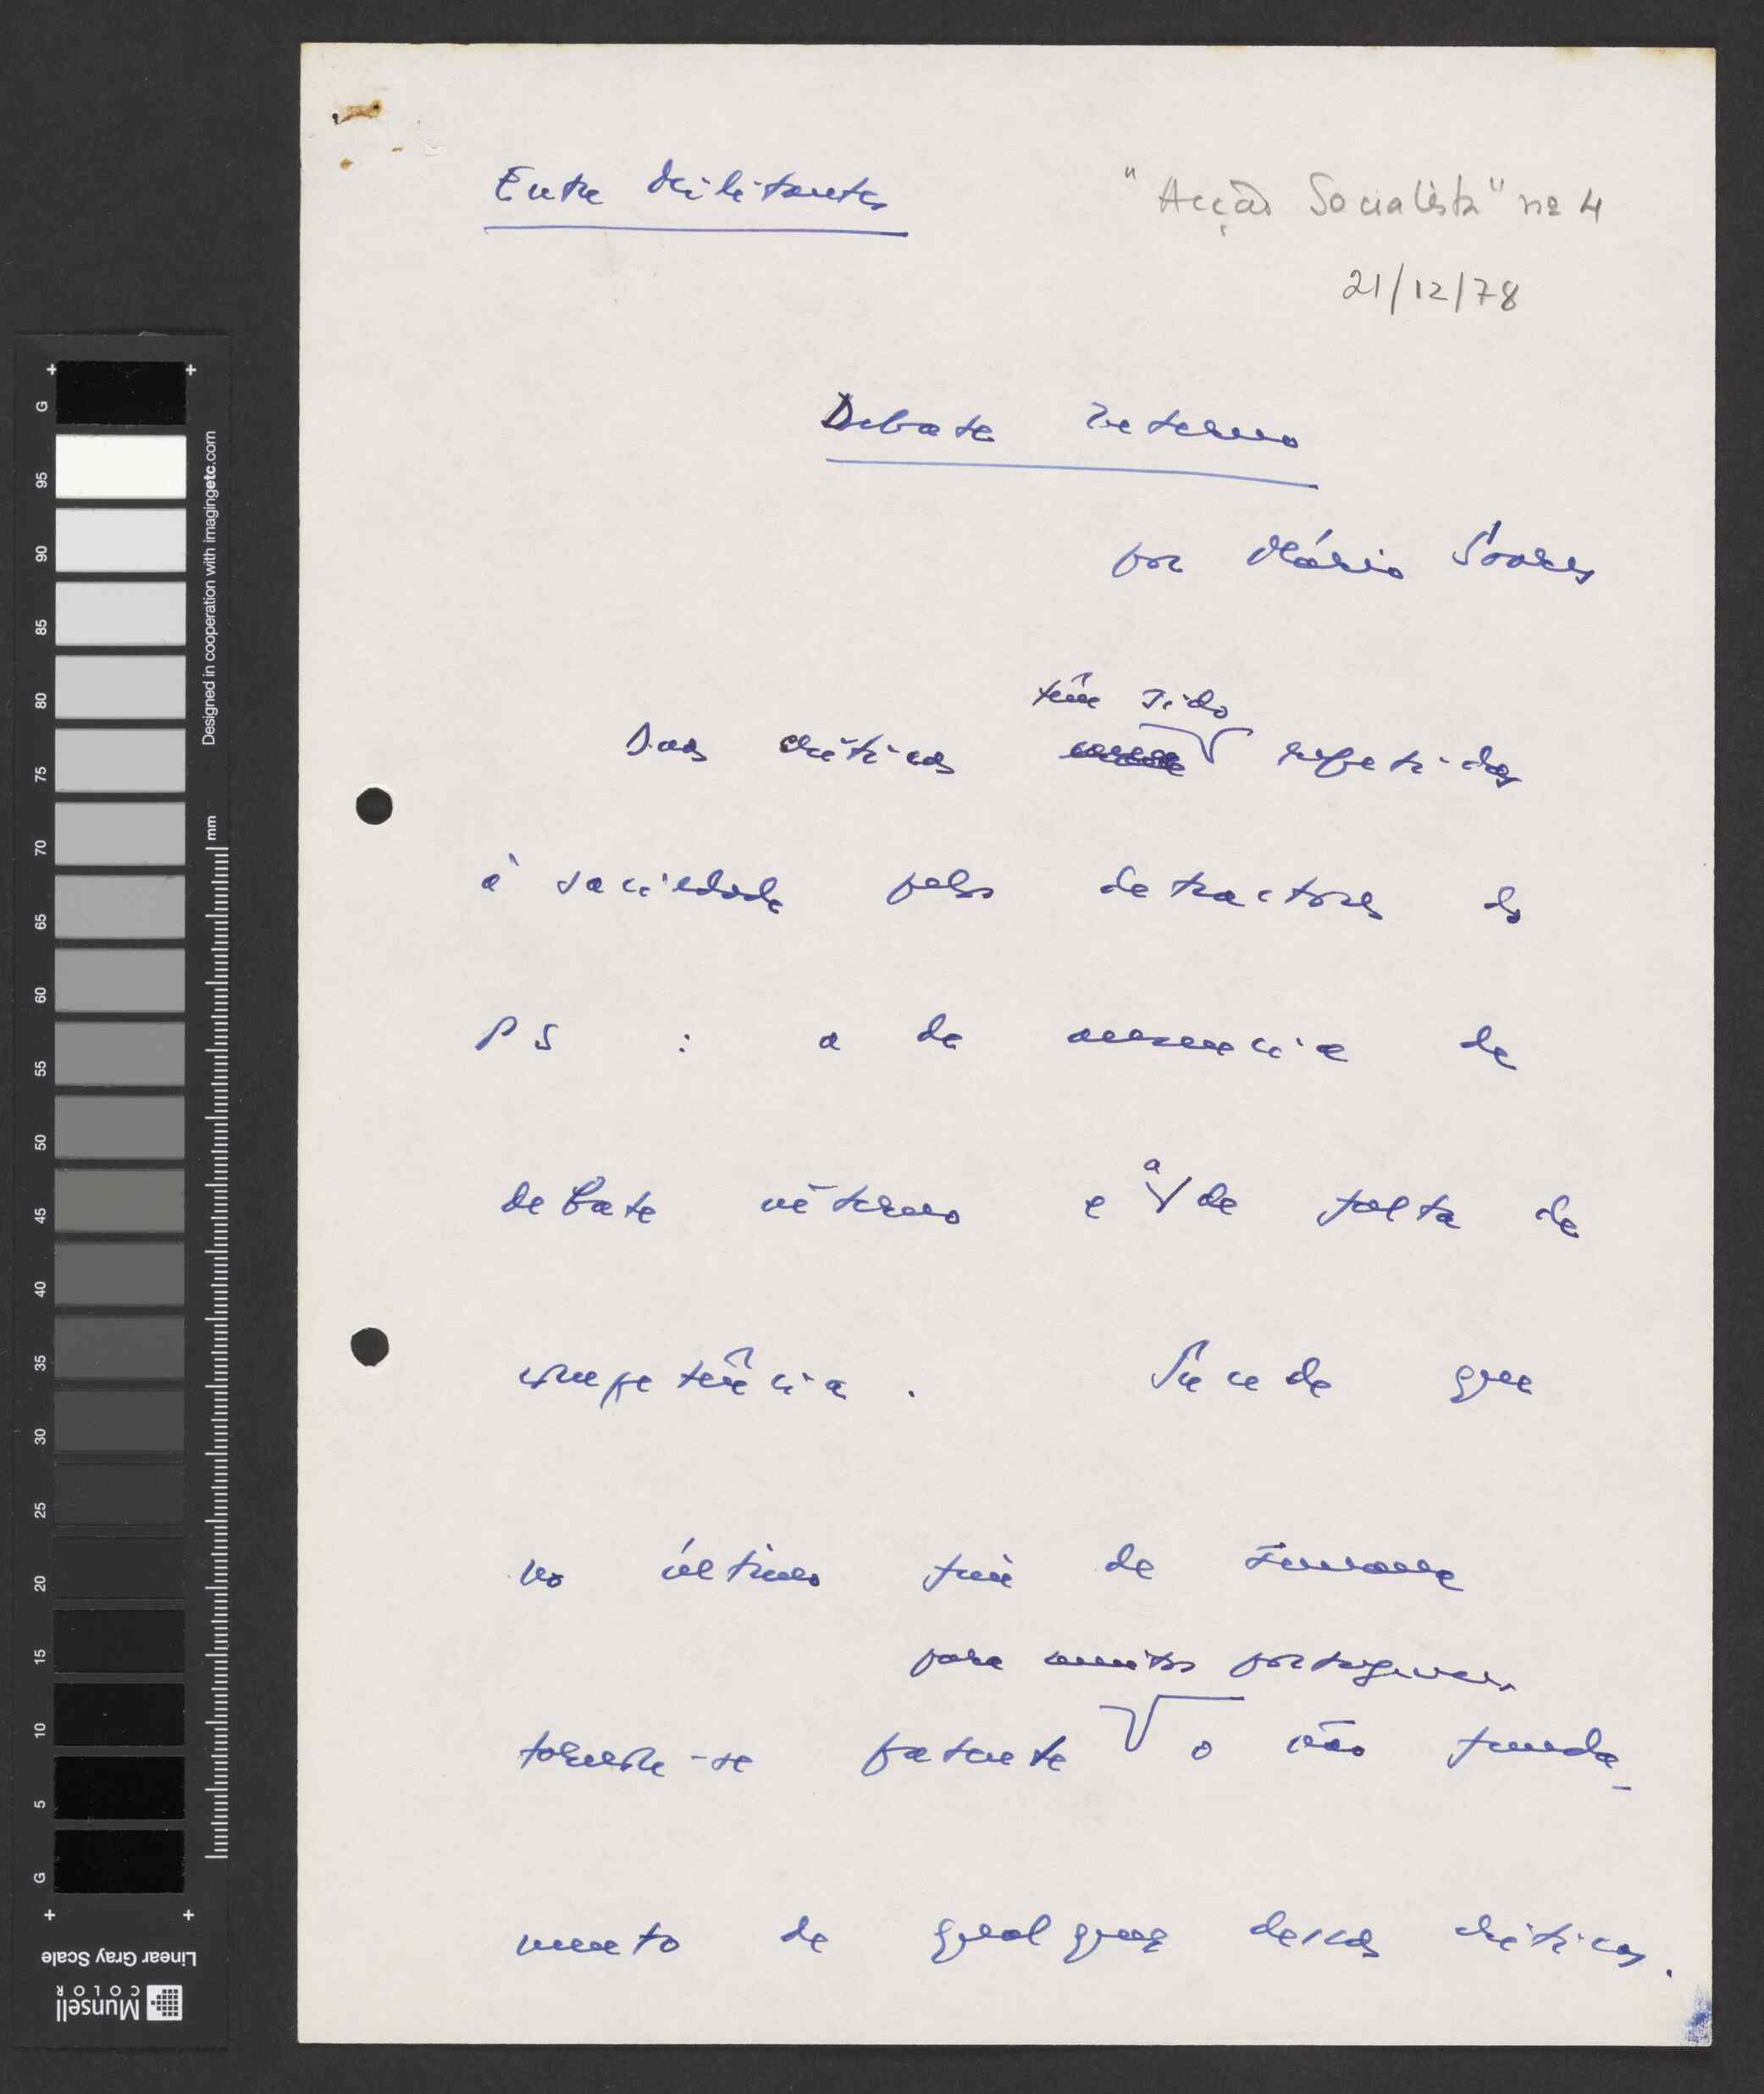 Entre Militantes
"Acção Socialista" nº 4
21/12/78
Debate Interno
por Mário Soares
têm sido
Duas críticas repetidas
à saciedade pelos detractores do
PS : a de ausência de
debate interno e a de falta de
competência . Sucede que
no último fim de semana
para muitos portugueses
tornou-se patente o não funda-
mento de qualquer dessas críticas.
G 95 90 85 80 75 70 65 60 55 50 45 40 35 30 25 20 15 10 5 G
Designed in cooperation with imagingetc.com
mm
Linear Gray Scale
Munsell
COLOR